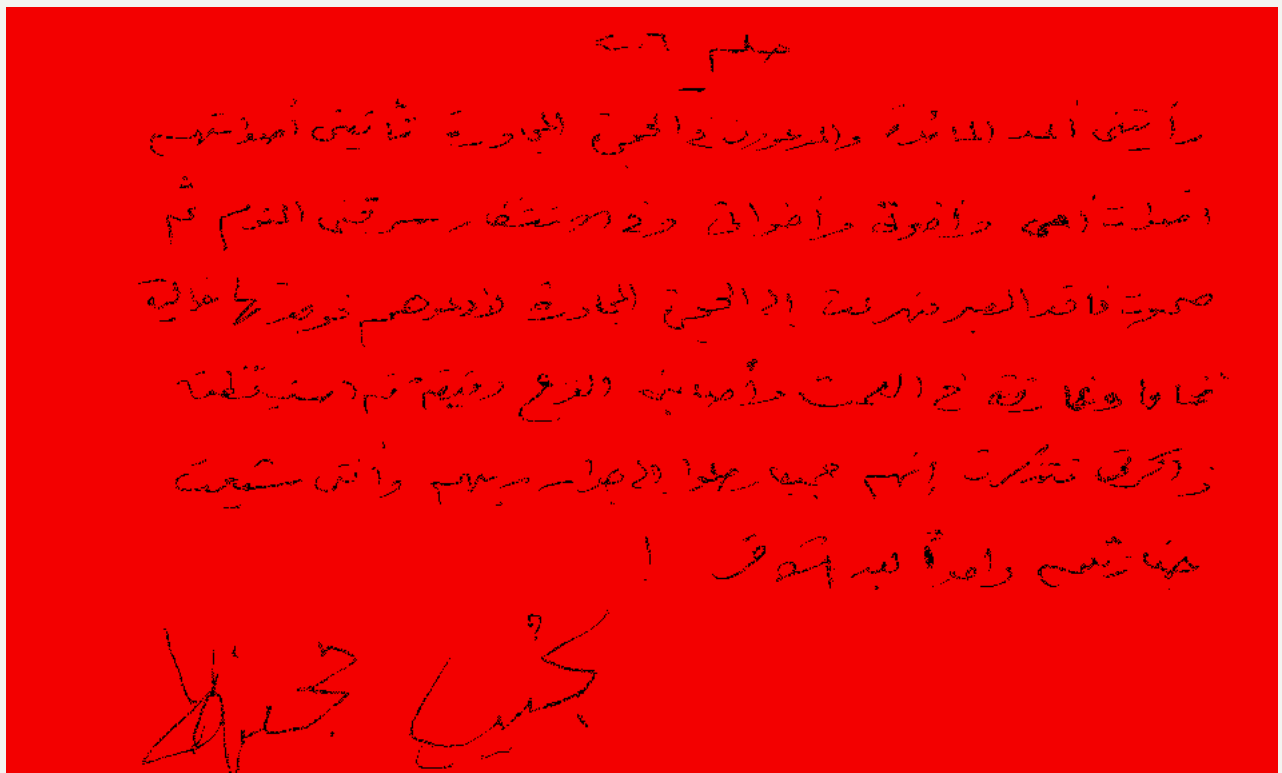 حلم ٢٠٦
رأيتني أعد المائدة والمدعوون في الحجرة المجاورة تأتيني أصواتهم
أصوات أمي وأخوتي وأخواتي وفي الانتظار سرقني النوم ثم
صحوت فاقد الصبر فهرعت إلى الحجرة المجاورة لأدعوهم فوجدتها خالية
تماما وغارقة في الصمت وأصابني الفزع دقيقة ثم استيقظت
ذاكرتي فتذكرت إنهم جميعا رحلوا إلى جوار ربهم وأنني شيعت
جنازاتهم واحداً بعد الآخر !
نجيب محفوظ